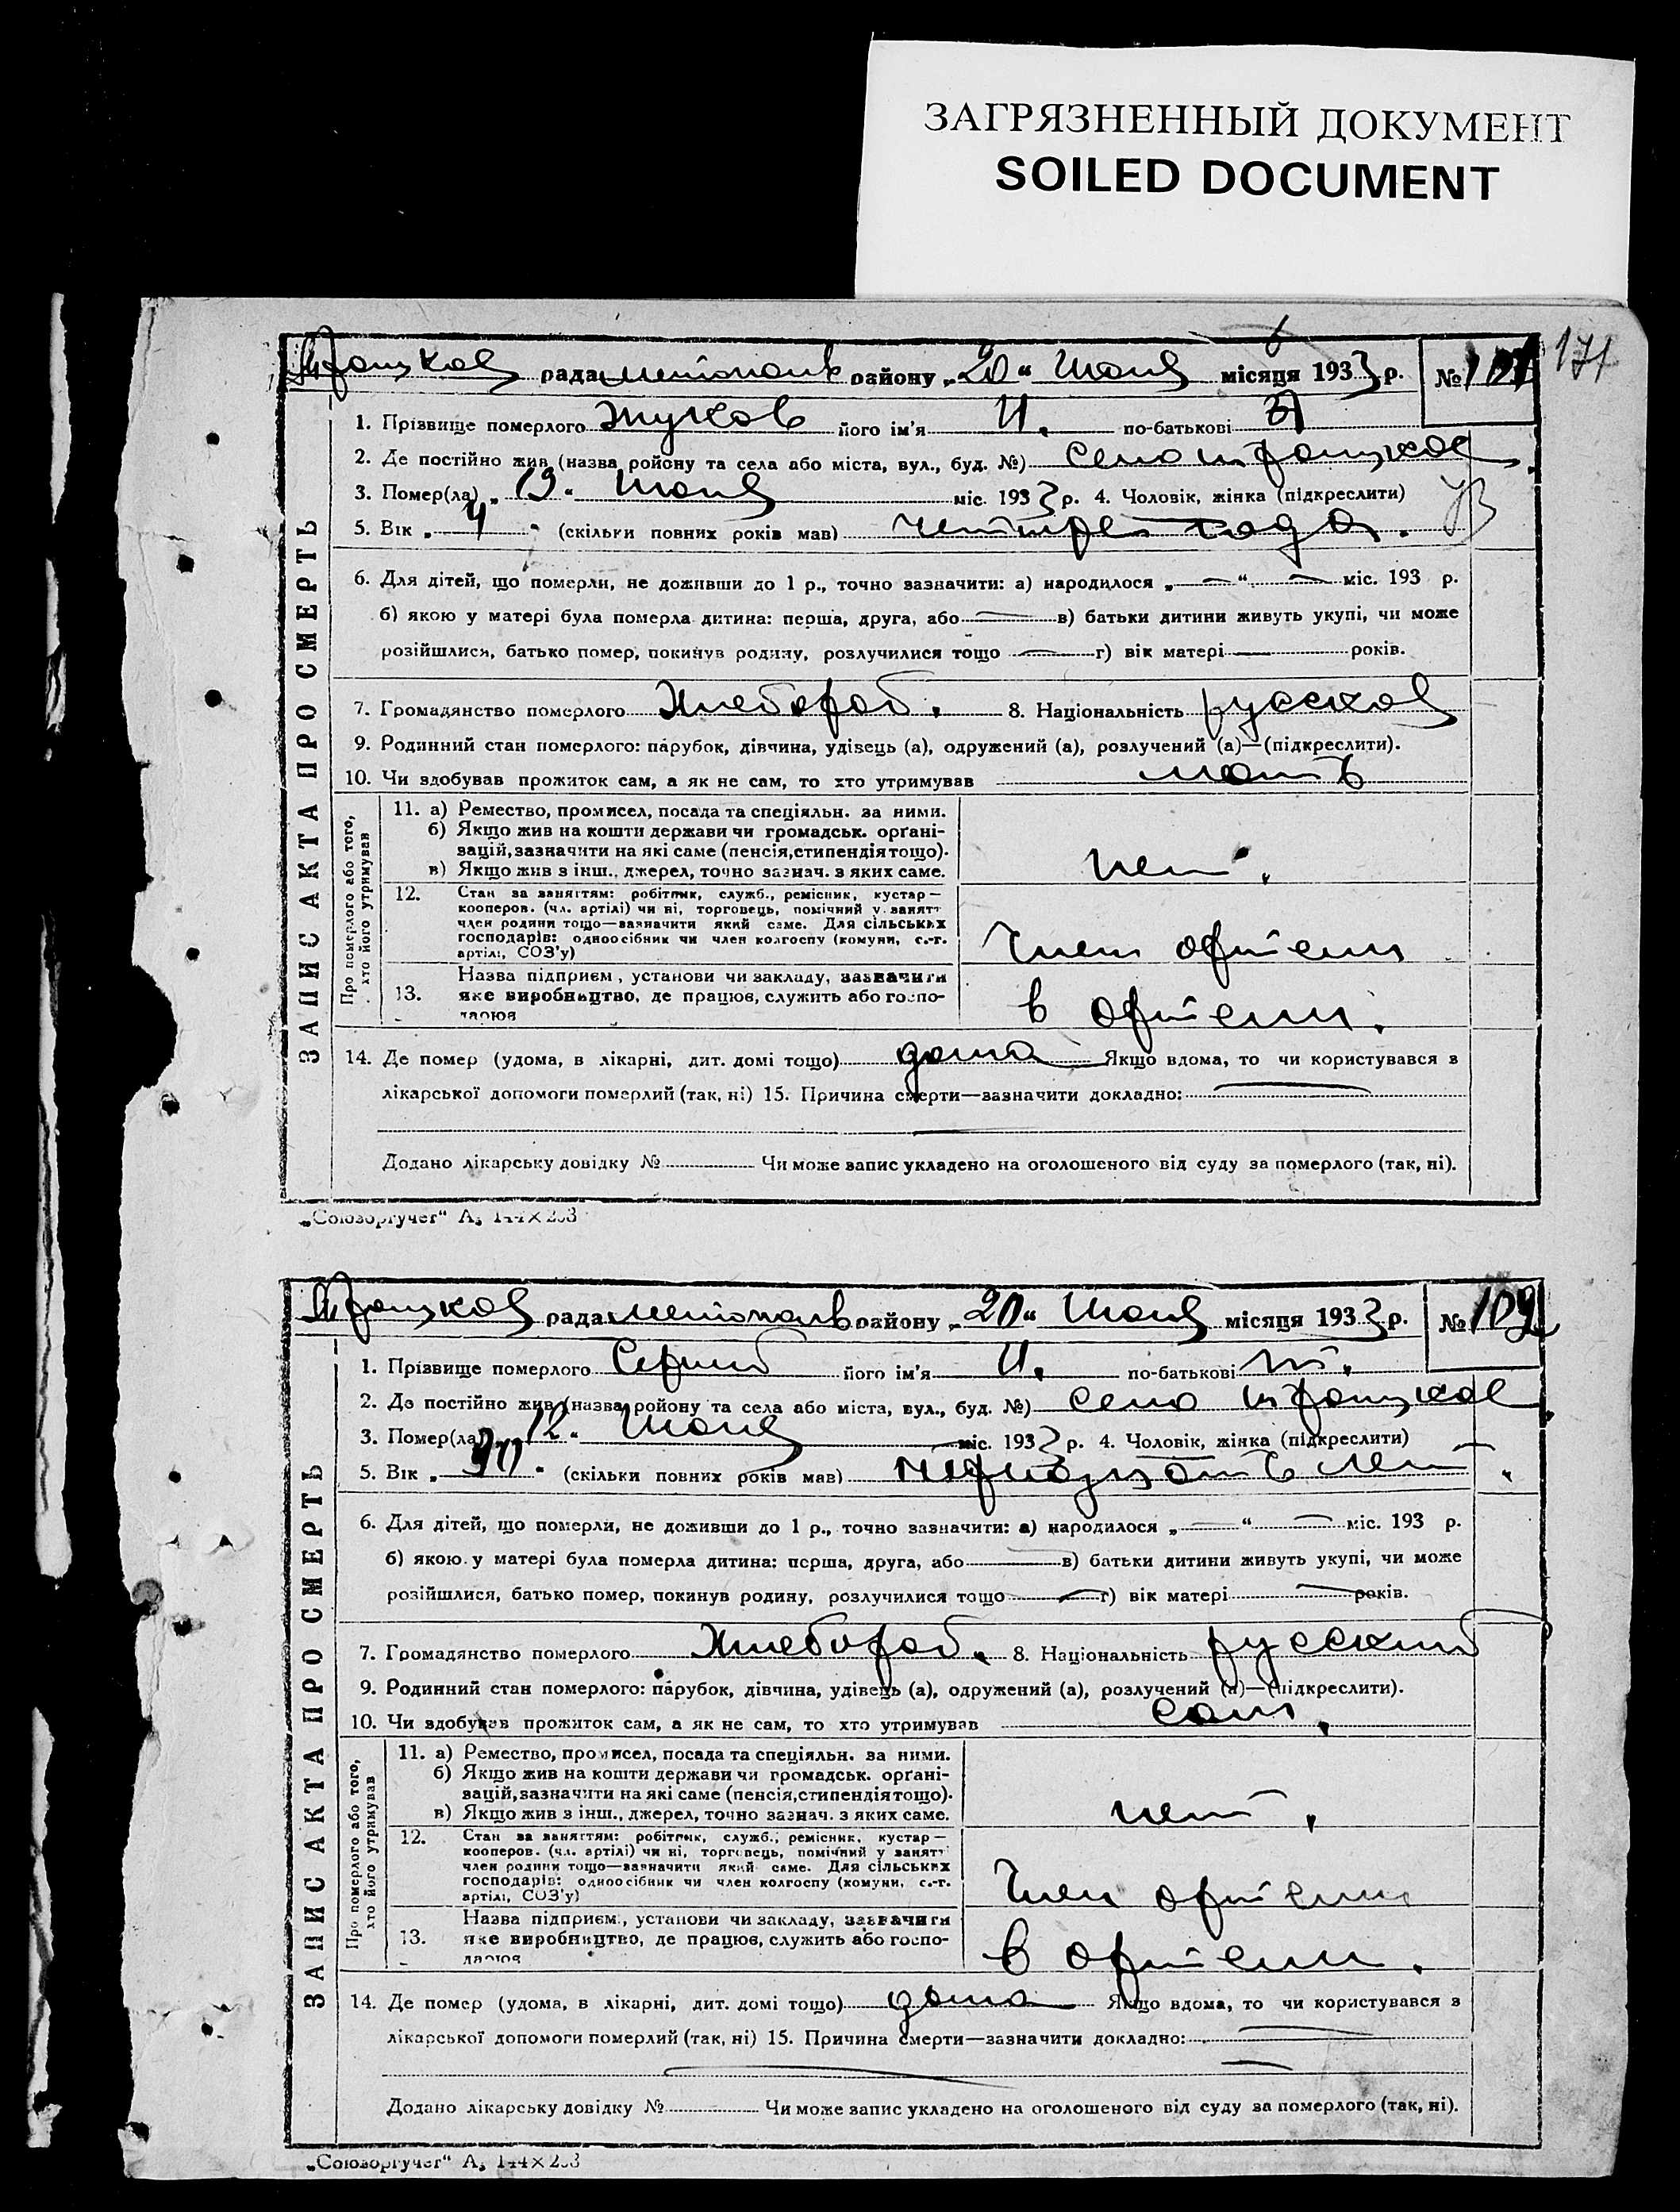 ЗАГРЯЗНЕННЫЙ ДОКУМЕНТ
SOILED DOCUMENT
171
рада району „20“ Июня місяця 1933 р. №
ЗАПИС АКТА ПРО СМЕРТЬ
1. Прізвище померлого Жуков його ім'я И. по-батькові
2. Де постійно жив (назва ройону та села або міста, вул., буд. №) село
3. Помер(ла) „19“ Июня міс. 1933 р. 4. Чоловік, жінка (підкреслити)
5. Вік „4“ (скільки повних років мав) четыре года.
6. Для дітей, що померли, не доживши до 1 р., точно зазначити: а) народилося „—“ — міс. 193 р.
б) якою у матері була померла дитина: перша, друга, або — в) батьки дитини живуть укупі, чи може
розійшлися, батько помер, покинув родину, розлучилися тощо — г) вік матері — років.
7. Громадянство померлого Хлебороб. 8. Національність русская
9. Родинний стан померлого: парубок, дівчина, удівець (а), одружений (а), розлучений (а)—(підкреслити).
10. Чи здобував прожиток сам, а як не сам, то хто утримував мать
Про померлого або того, хто його утримував
11. а) Ремество, промисел, посада та спеціяльн. за ними.
б) Якщо жив на кошти держави чи громадськ. орґані-
зацій, зазначити на які саме (пенсія, стипендія тощо).
в) Якщо жив з інш., джерел, точно зазнач. з яких саме.
нет.
12. Стан за заняттям: робітник, служб., ремісник, кустар—
кооперов. (чл. артілі) чи ні, торговець, помічний у занятт
член родини тощо—зазначити який саме. Для сільських
господарів: одноосібник чи член колгоспу (комуни, с.-г.
артілі, СОЗ'у)
Член артели
13. Назва підприєм., установи чи закладу, зазначити
яке виробництво, де працює, служить або госпо-
дарює
в артели.
14. Де помер (удома, в лікарні, дит. домі тощо) дома Якщо вдома, то чи користувався з
лікарської допомоги померлий (так, ні) 15. Причина смерти—зазначити докладно: —
Додано лікарську довідку № Чи може запис укладено на оголошеного від суду за померлого (так, ні).
„Союзоргучет“ А₅ 144×203
рада району „20“ Июня місяця 1933 р. № 109
ЗАПИС АКТА ПРО СМЕРТЬ
1. Прізвище померлого його ім'я И. по-батькові
2. Де постійно жив (назва ройону та села або міста, вул., буд. №) село
3. Помер(ла) „12“ Июня міс. 1933 р. 4. Чоловік, жінка (підкреслити)
5. Вік (скільки повних років мав) лет
6. Для дітей, що померли, не доживши до 1 р., точно зазначити: а) народилося „—“ — міс. 193 р.
б) якою у матері була померла дитина: перша, друга, або — в) батьки дитини живуть укупі, чи може
розійшлися, батько помер, покинув родину, розлучилися тощо — г) вік матері — років.
7. Громадянство померлого Хлебороб. 8. Національність русский
9. Родинний стан померлого: парубок, дівчина, удівець (а), одружений (а), розлучений (а)—(підкреслити).
10. Чи здобував прожиток сам, а як не сам, то хто утримував сам.
Про померлого або того, хто його утримував
11. а) Ремество, промисел, посада та спеціяльн. за ними.
б) Якщо жив на кошти держави чи громадськ. орґані-
зацій, зазначити на які саме (пенсія, стипендія тощо).
в) Якщо жив з інш., джерел, точно зазнач. з яких саме.
нет.
12. Стан за заняттям: робітник, служб., ремісник, кустар—
кооперов. (чл. артілі) чи ні, торговець, помічний у занятт
член родини тощо—зазначити який саме. Для сільських
господарів: одноосібник чи член колгоспу (комуни, с.-г.
артілі, СОЗ'у)
Член артели
13. Назва підприєм., установи чи закладу, зазначити
яке виробництво, де працює, служить або госпо-
дарює
в артели.
14. Де помер (удома, в лікарні, дит. домі тощо) дома Якщо вдома, то чи користувався з
лікарської допомоги померлий (так, ні) 15. Причина смерти—зазначити докладно: —
Додано лікарську довідку № Чи може запис укладено на оголошеного від суду за померлого (так, ні).
„Союзоргучет“ А₅ 144×203